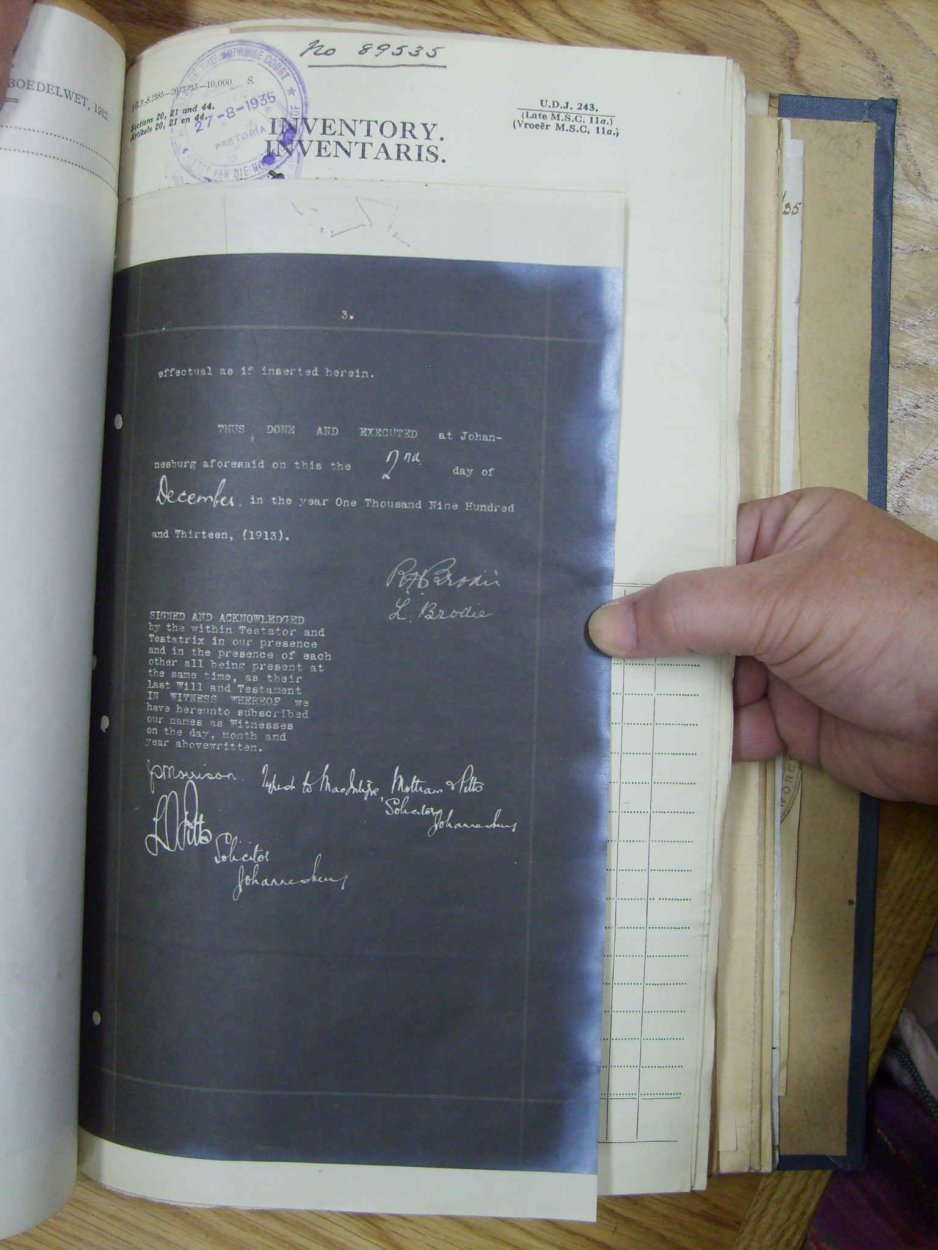 BOEDELWET, 191
No 89535
SUPREME COURT
27-8-1935
PRETORIA
Sections 20, 21 and 44.
Artikels 20, 21 en 44.
U.D.J. 243.
(Late M.S.C. 11a.)
(Vroeër M.S.C. 11a.)
INVENTORY.
INVENTARIS.
/35
3.
effectual as if inserted herein.
THUS DONE AND EXECUTED at Johan-
nesburg aforesaid on this the 2nd day of
December. in the year One Thousand Nine Hundred
and Thirteen, (1913).
Brodie
L. Brodie
SIGNED AND ACKNOWLEDGED
by the within Testator and
Testatrix in our presence
and in the presence of each
other all being present at
the same time, as their
Last Will and Testament
IN WITNESS WHEREOF we
have hereunto subscribed
our names as Witnesses
on the day, month and
year abovewritten.
Morrison. Typist to MacIntyre Mottram & Pitts
Solicitors
Johannesburg
Pitts
Solicitor
Johannesburg